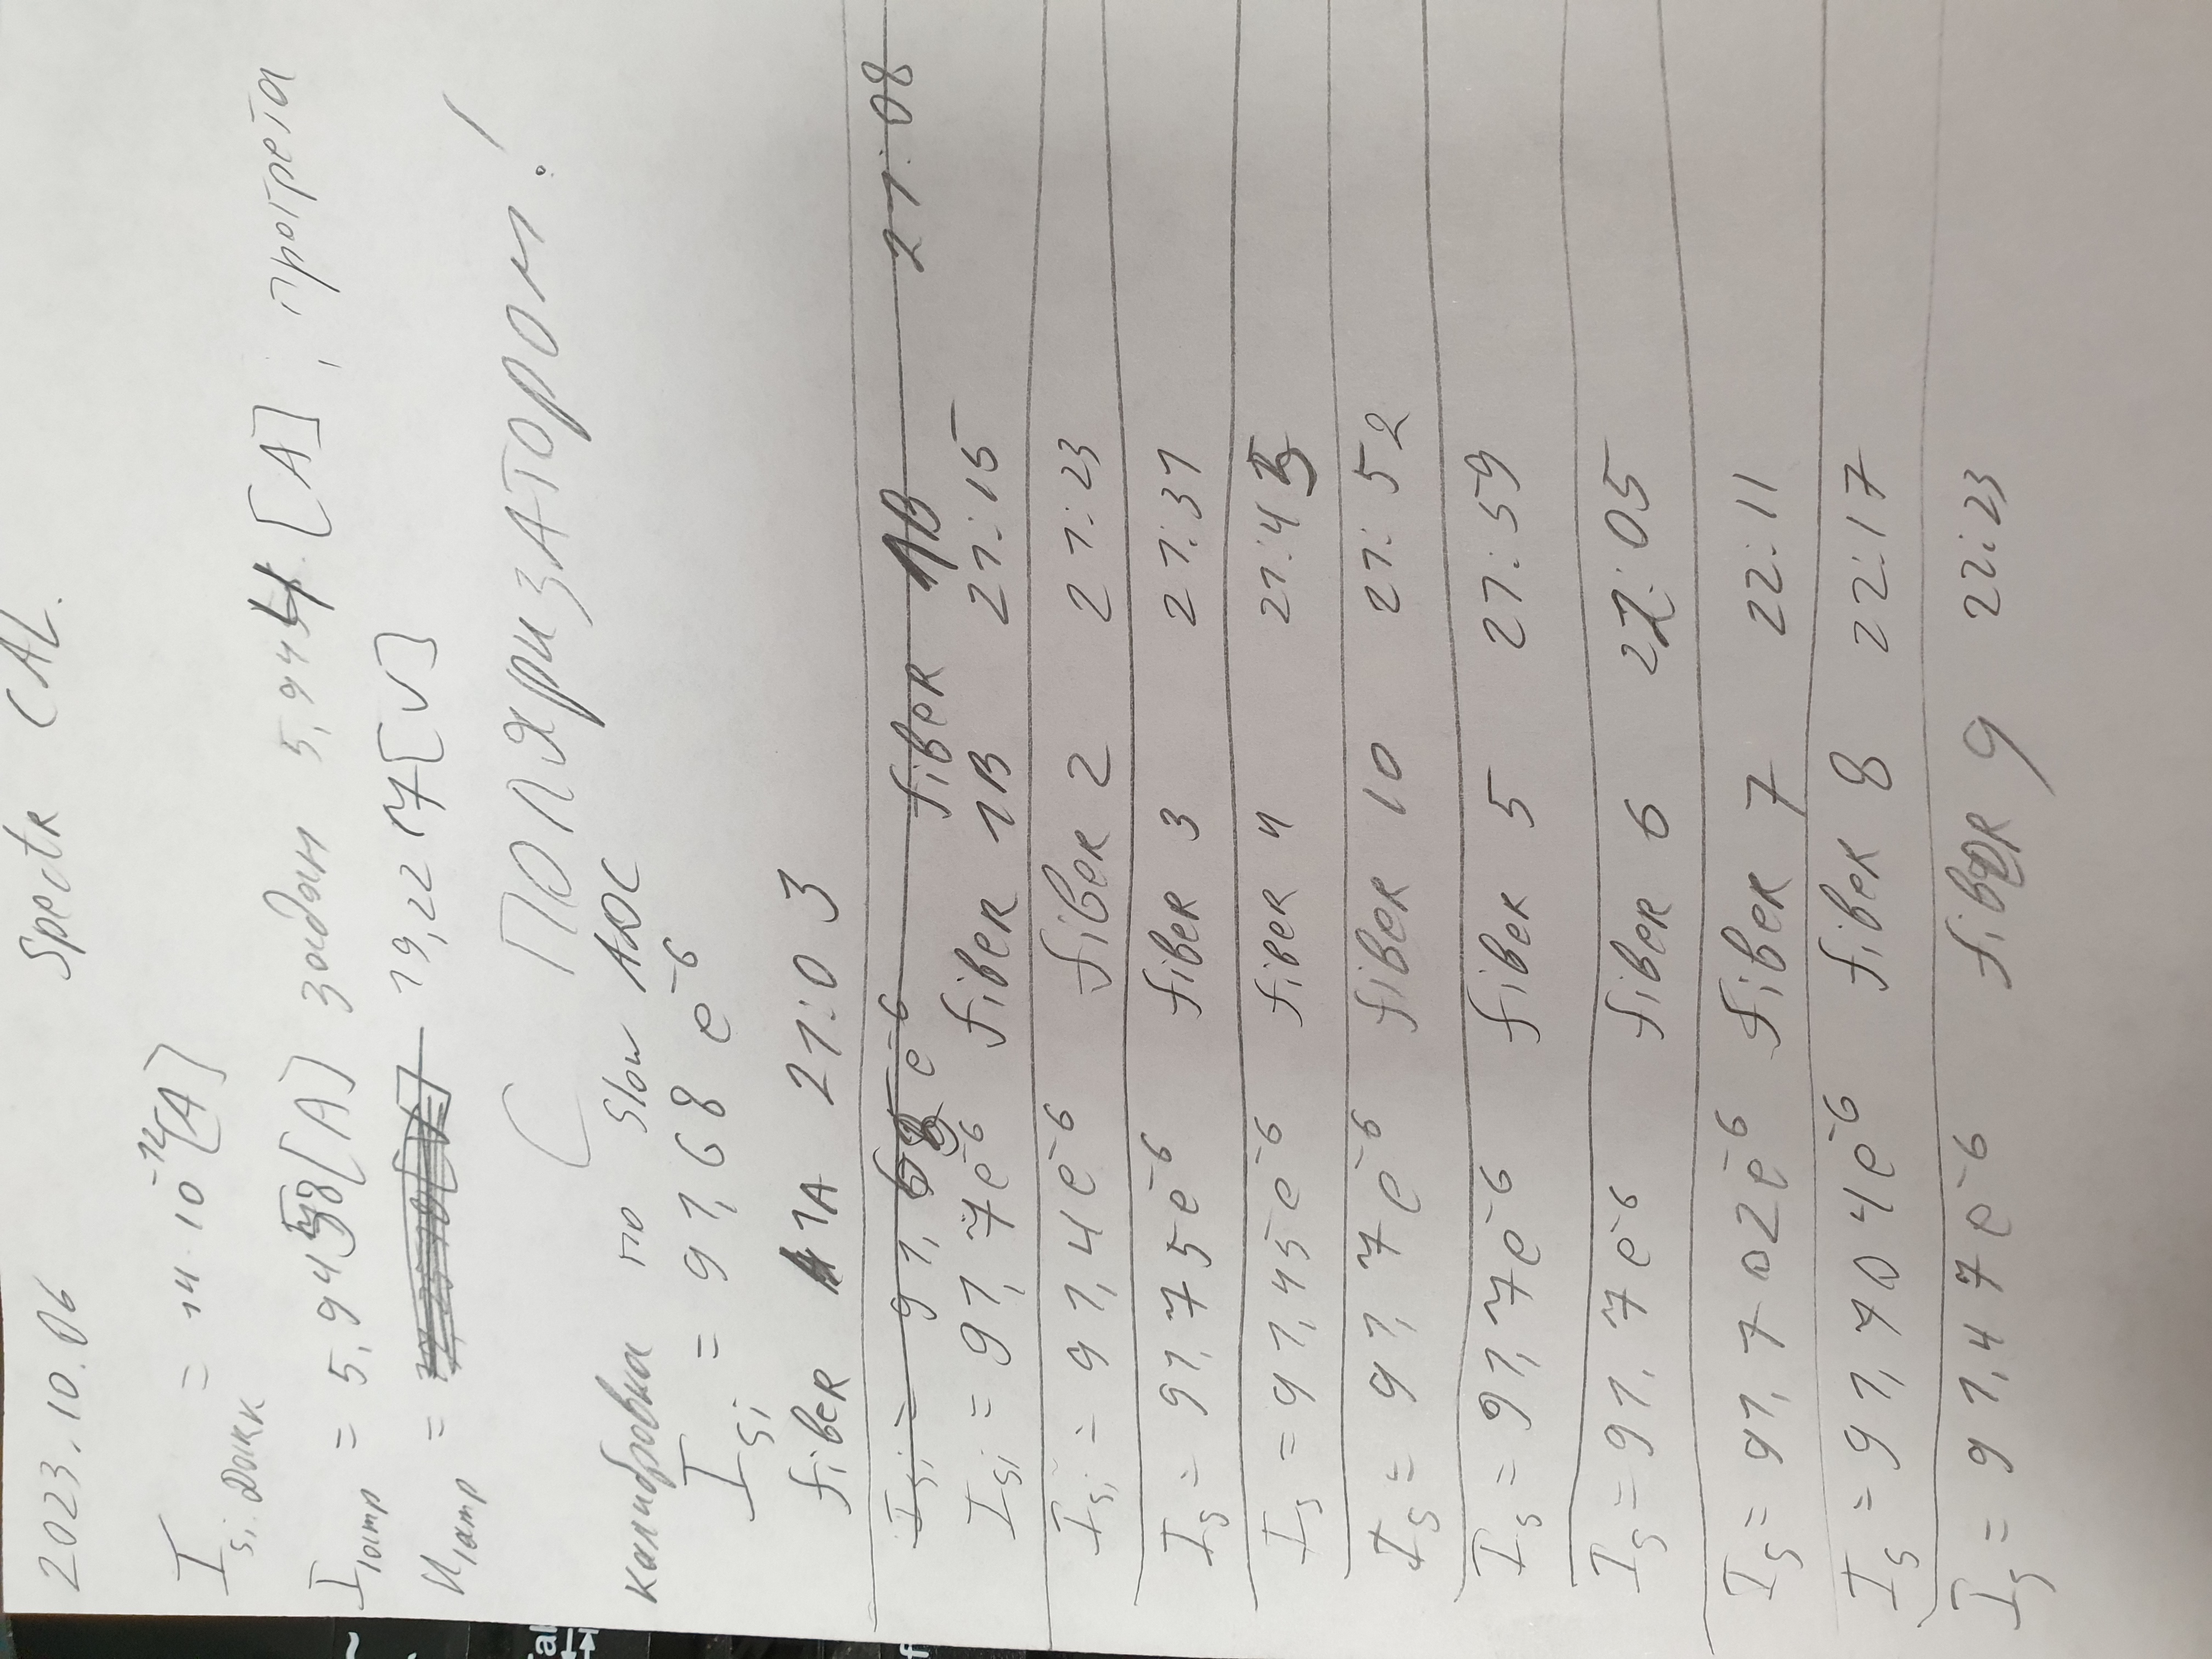 2023.10.06 Spectr CAL.
I si Dark = 14 · 10^-12 [A]
I lamp = 5,9458 [A] задан 5,944 [A], прогрета
U lamp = 19,227 [V]
С ПОЛЯРИЗАТОРОМ!
калибровка по Slow ADC
I si = 91,68 e^-6
fiber 1A 21:03
I si = 91,65 e^-6 fiber 1B 21:08
I si = 91,7 e^-6 fiber 1B 21:15
I si = 91,4 e^-6 fiber 2 21:23
I s = 91,75 e^-6 fiber 3 21:31
I s = 91,45 e^-6 fiber 4 21:45
I s = 91,7 e^-6 fiber 10 21:52
I s = 91,7 e^-6 fiber 5 21:59
I s = 91,7 e^-6 fiber 6 22:05
I s = 91,702 e^-6 fiber 7 22:11
I s = 91,704 e^-6 fiber 8 22:17
I s = 91,47 e^-6 fiber 9 22:23